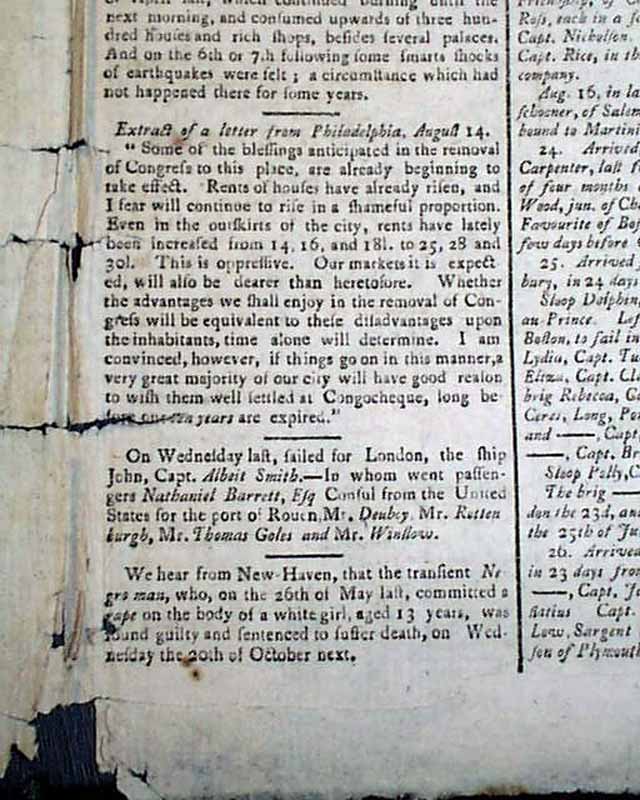 of April last, which continued burning until the
next morning, and consumed upwards of three hun-
dred houses and rich shops, besides several palaces.
And on the 6th or 7th following some smarts shocks
of earthquakes were felt ; a circumstance which had
not happened there for some years.
Extract of a letter from Philadelphia, August 14.
" Some of the blessings anticipated in the removal
of Congress to this place, are already beginning to
take effect. Rents of houses have already risen, and
I fear will continue to rise in a shameful proportion.
Even in the outskirts of the city, rents have lately
been increased from 14, 16, and 18l. to 25, 28 and
30l. This is oppressive. Our markets it is expect
ed, will also be dearer than heretofore. Whether
the advantages we shall enjoy in the removal of Con-
gress will be equivalent to these disadvantages upon
the inhabitants, time alone will determine. I am
convinced, however, if things go on in this manner, a
very great majority of our city will have good reason
to wish them well settled at Congocheque, long be-
fore ten years are expired."
On Wednesday last, sailed for London, the ship
John, Capt. Albeit Smith.—In whom went passen-
gers Nathaniel Barrett, Esq Consul from the United
States for the port of Rouen, Mr. Deubey, Mr. Rotten
burgh, Mr. Thomas Goles and Mr. Winslow.
We hear from New-Haven, that the transient Ne
gro man, who, on the 26th of May last, committed a
rape on the body of a white girl, aged 13 years, was
found guilty and sentenced to suffer death, on Wed-
nesday the 20th of October next.
Friendship, of
Ross, each in a
Capt. Nicholson.
Capt. Rice, in th
company.
Aug. 16, in la
schooner, of Salem
bound to Martini
24. Arrived,
Carpenter, last f
of four months
Wood, jun. of Ch
Favourite of Bos
few days before
25. Arrived
bury, in 24 days
Sloop Dolphin,
au-Prince. Lef
Boston, to sail in
Lydia, Capt. Tu
Eliza, Capt. Cla
brig Rebecca, Ca
Ceres, Long, Po
and ——, Capt
——, Capt. Br
Sloop Polly, C
The brig ——
don the 23d, and
the 25th of Ju
26. Arrived
in 23 days from
——, Capt. Ja
statius Capt.
Low, Sargent
son of Plymouth